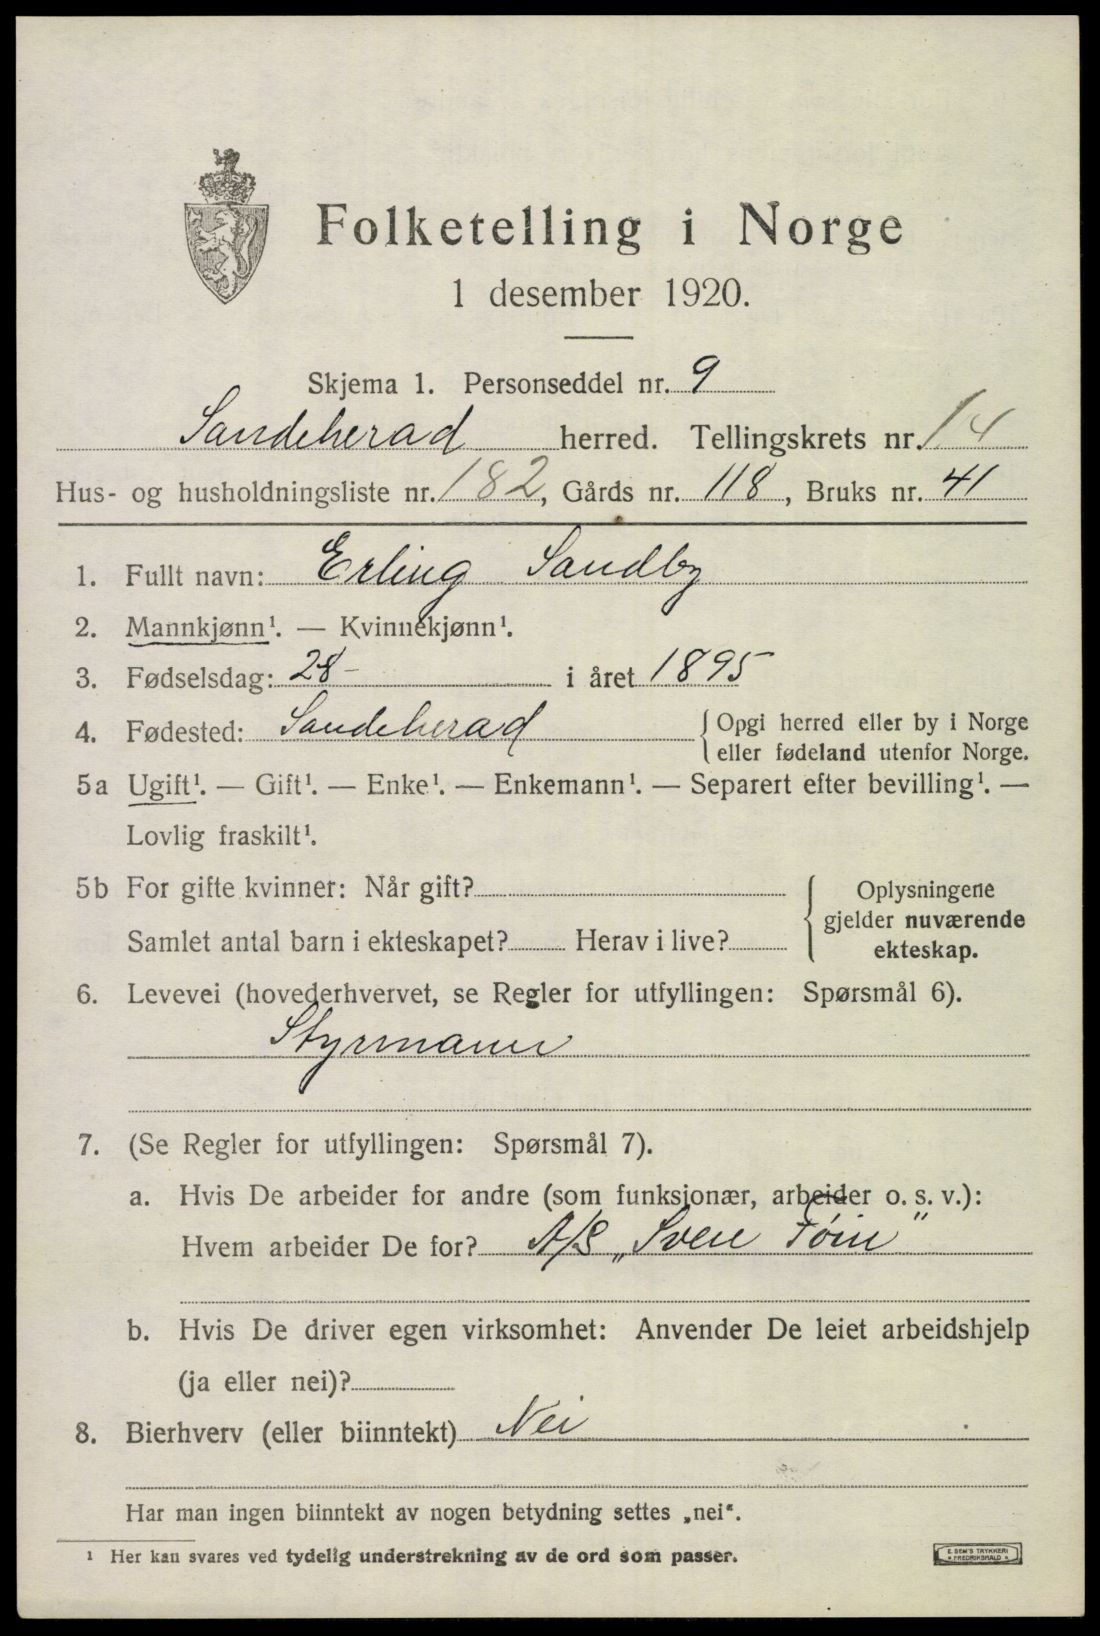 Folketelling i Norge
1 desember 1920.
Skjema 1. Personseddel nr. 9
Sandeherad herred. Tellingskrets nr. 14
Hus- og husholdningsliste nr. 182, Gårds nr. 118, Bruks nr. 41
1. Fullt navn: Erling Sandby
2. Mannkjønn¹. — Kvinnekjønn¹.
3. Fødselsdag: 28- i året 1895
4. Fødested: Sandeherad {Opgi herred eller by i Norge
eller fødeland utenfor Norge.
5a Ugift¹. — Gift¹. — Enke¹. — Enkemann¹. — Separert efter bevilling¹. —
Lovlig fraskilt¹.
5b For gifte kvinner: Når gift? { Oplysningene
gjelder nuværende
Samlet antal barn i ekteskapet? Herav i live? ekteskap.
6. Levevei (hovederhvervet, se Regler for utfyllingen: Spørsmål 6).
Styrmann
7. (Se Regler for utfyllingen: Spørsmål 7).
a. Hvis De arbeider for andre (som funksjonær, arbeider o. s. v.):
Hvem arbeider De for? A/S „Sven Föin"
b. Hvis De driver egen virksomhet: Anvender De leiet arbeidshjelp
(ja eller nei)?
8. Bierhverv (eller biinntekt) Nei
Har man ingen biinntekt av nogen betydning settes „nei“.
¹ Her kan svares ved tydelig understrekning av de ord som passer.
E. SEM'S TRYKKERI
FREDRIKSHALD